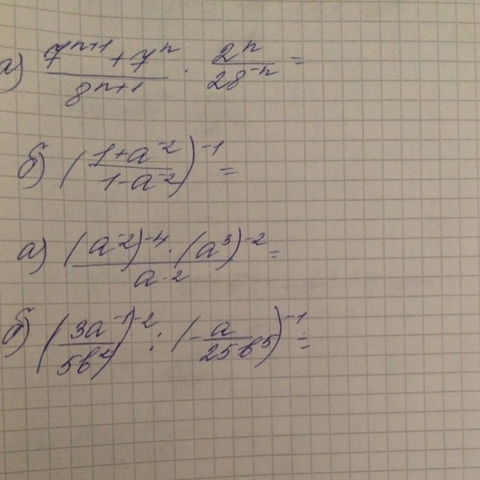 а) (7^(n+1) + 7^n)/(8^(n+1)) · (2^n)/(28^(-n)) =
б) ((1+a^(-2))/(1-a^(-2)))^(-1) =
а) ((a^(-2))^(-4) · (a^3)^(-2))/(a^(-2)) =
б) ((3a^(-1))/(5b^2))^(-2) : (-(a)/(25b^5))^(-1) =